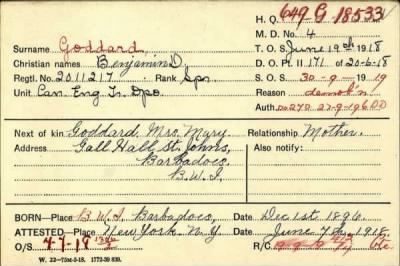 H. Q. 649 G 18533
M. D. No. 4
Surname Goddard. T. O. S. June 19th 1918
Christian names Benjamin D. D. O. Pt. II 171 of 20-6-18
Regtl. No. 2011217. Rank Spr. S. O. S. 30-9-1919
Unit Can. Eng. Tr. Dpo. Reason demob'n
Auth. 270 27-9-19
Next of kin Goddard, Mrs. Mary. Relationship Mother.
Address Gall Hall, St. Johns, Also notify:
Barbadoes,
B.W.I.
BORN—Place B.W.I. Barbadoes, Date Dec. 1st. 1896.
ATTESTED—Place New York N.Y. Date June 7th, 1918.
O/S 4-7-18 R/C
W. 22—75M-5-18. 1772-39 839.